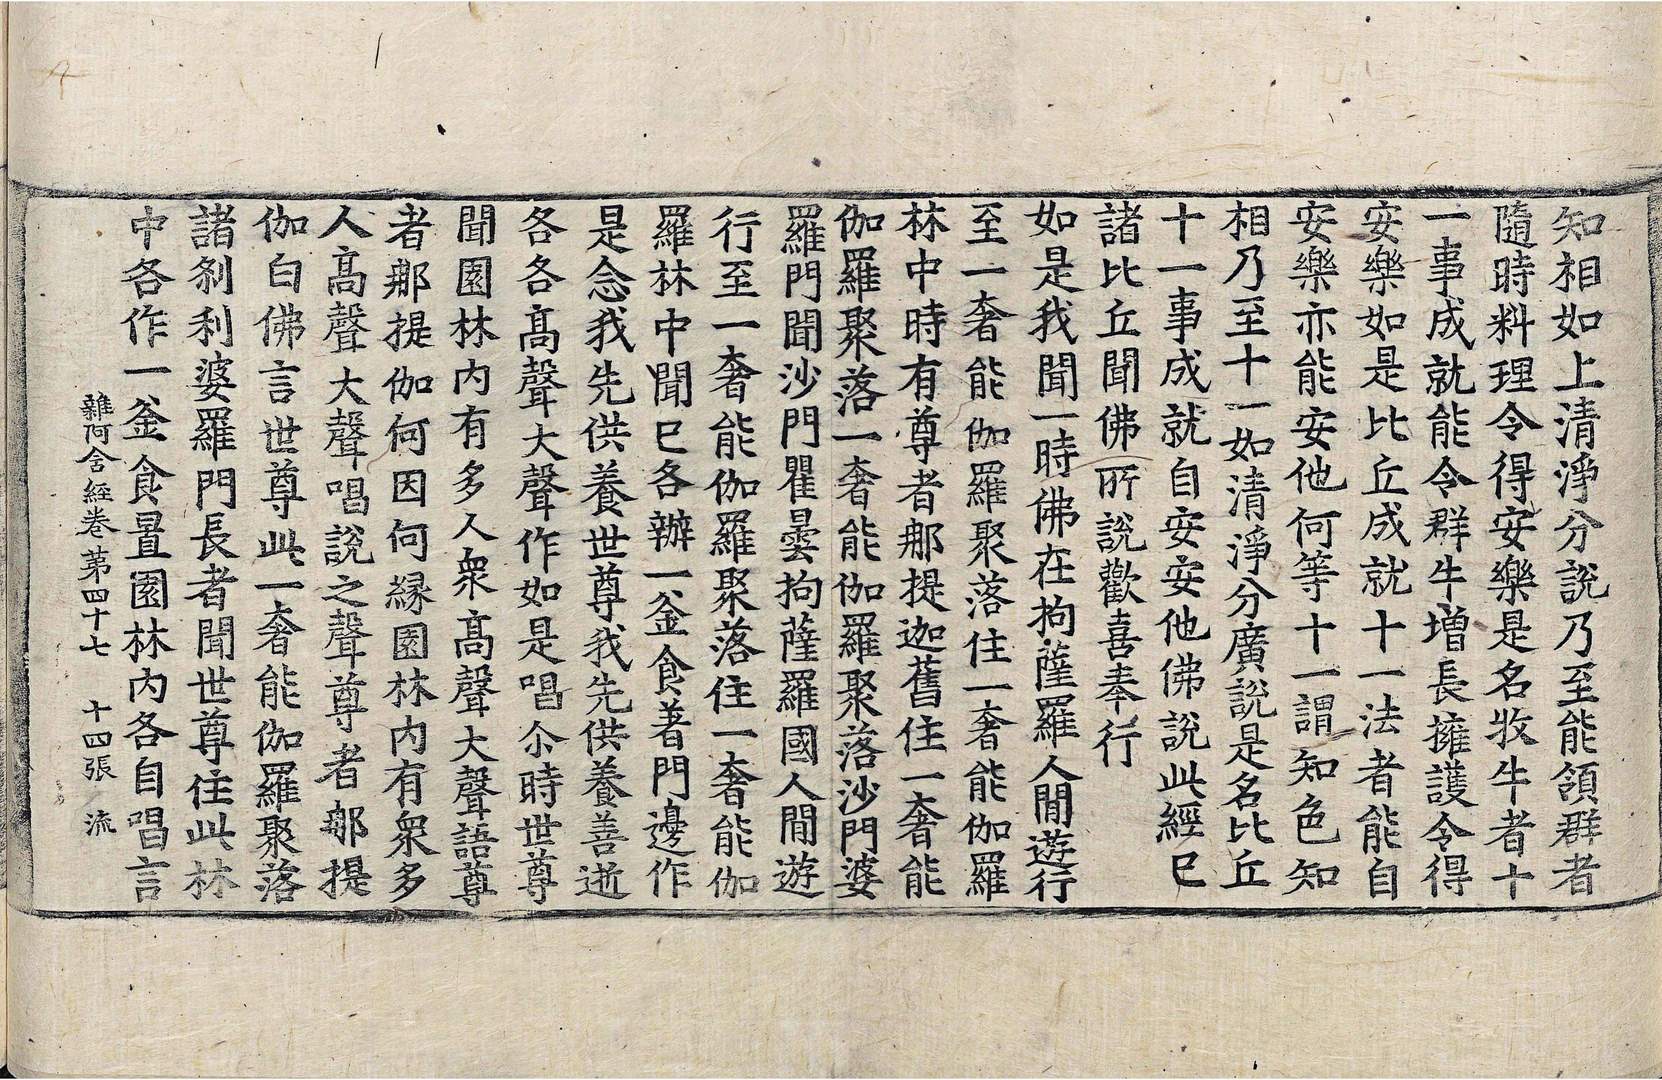 知相如上清淨分說乃至能領群者
隨時料理令得安樂是名牧牛者十
一事成就能令群牛增長擁護令得
安樂如是比丘成就十一法者能自
安樂亦能安他何等十一謂知色知
相乃至十一如清淨分廣說是名比丘
十一事成就自安安他佛說此經已
諸比丘聞佛所說歡喜奉行
如是我聞一時佛在拘薩羅人閒遊行
至一奢能伽羅聚落住一奢能伽羅
林中時有尊者那提迦舊住一奢能
伽羅聚落一奢能伽羅聚落沙門婆
羅門聞沙門瞿曇拘薩羅國人閒遊
行至一奢能伽羅聚落住一奢能伽
羅林中聞已各辦一釜食著門邊作
是念我先供養世尊我先供養善逝
各各高聲大聲作如是唱尒時世尊
聞園林內有多人衆高聲大聲語尊
者那提伽何因何緣園林內有衆多
人高聲大聲唱說之聲尊者那提
伽白佛言世尊此一奢能伽羅聚落
諸刹利婆羅門長者聞世尊住此林
中各作一釜食置園林內各自唱言
雜阿含經卷第四十七 十四張 流